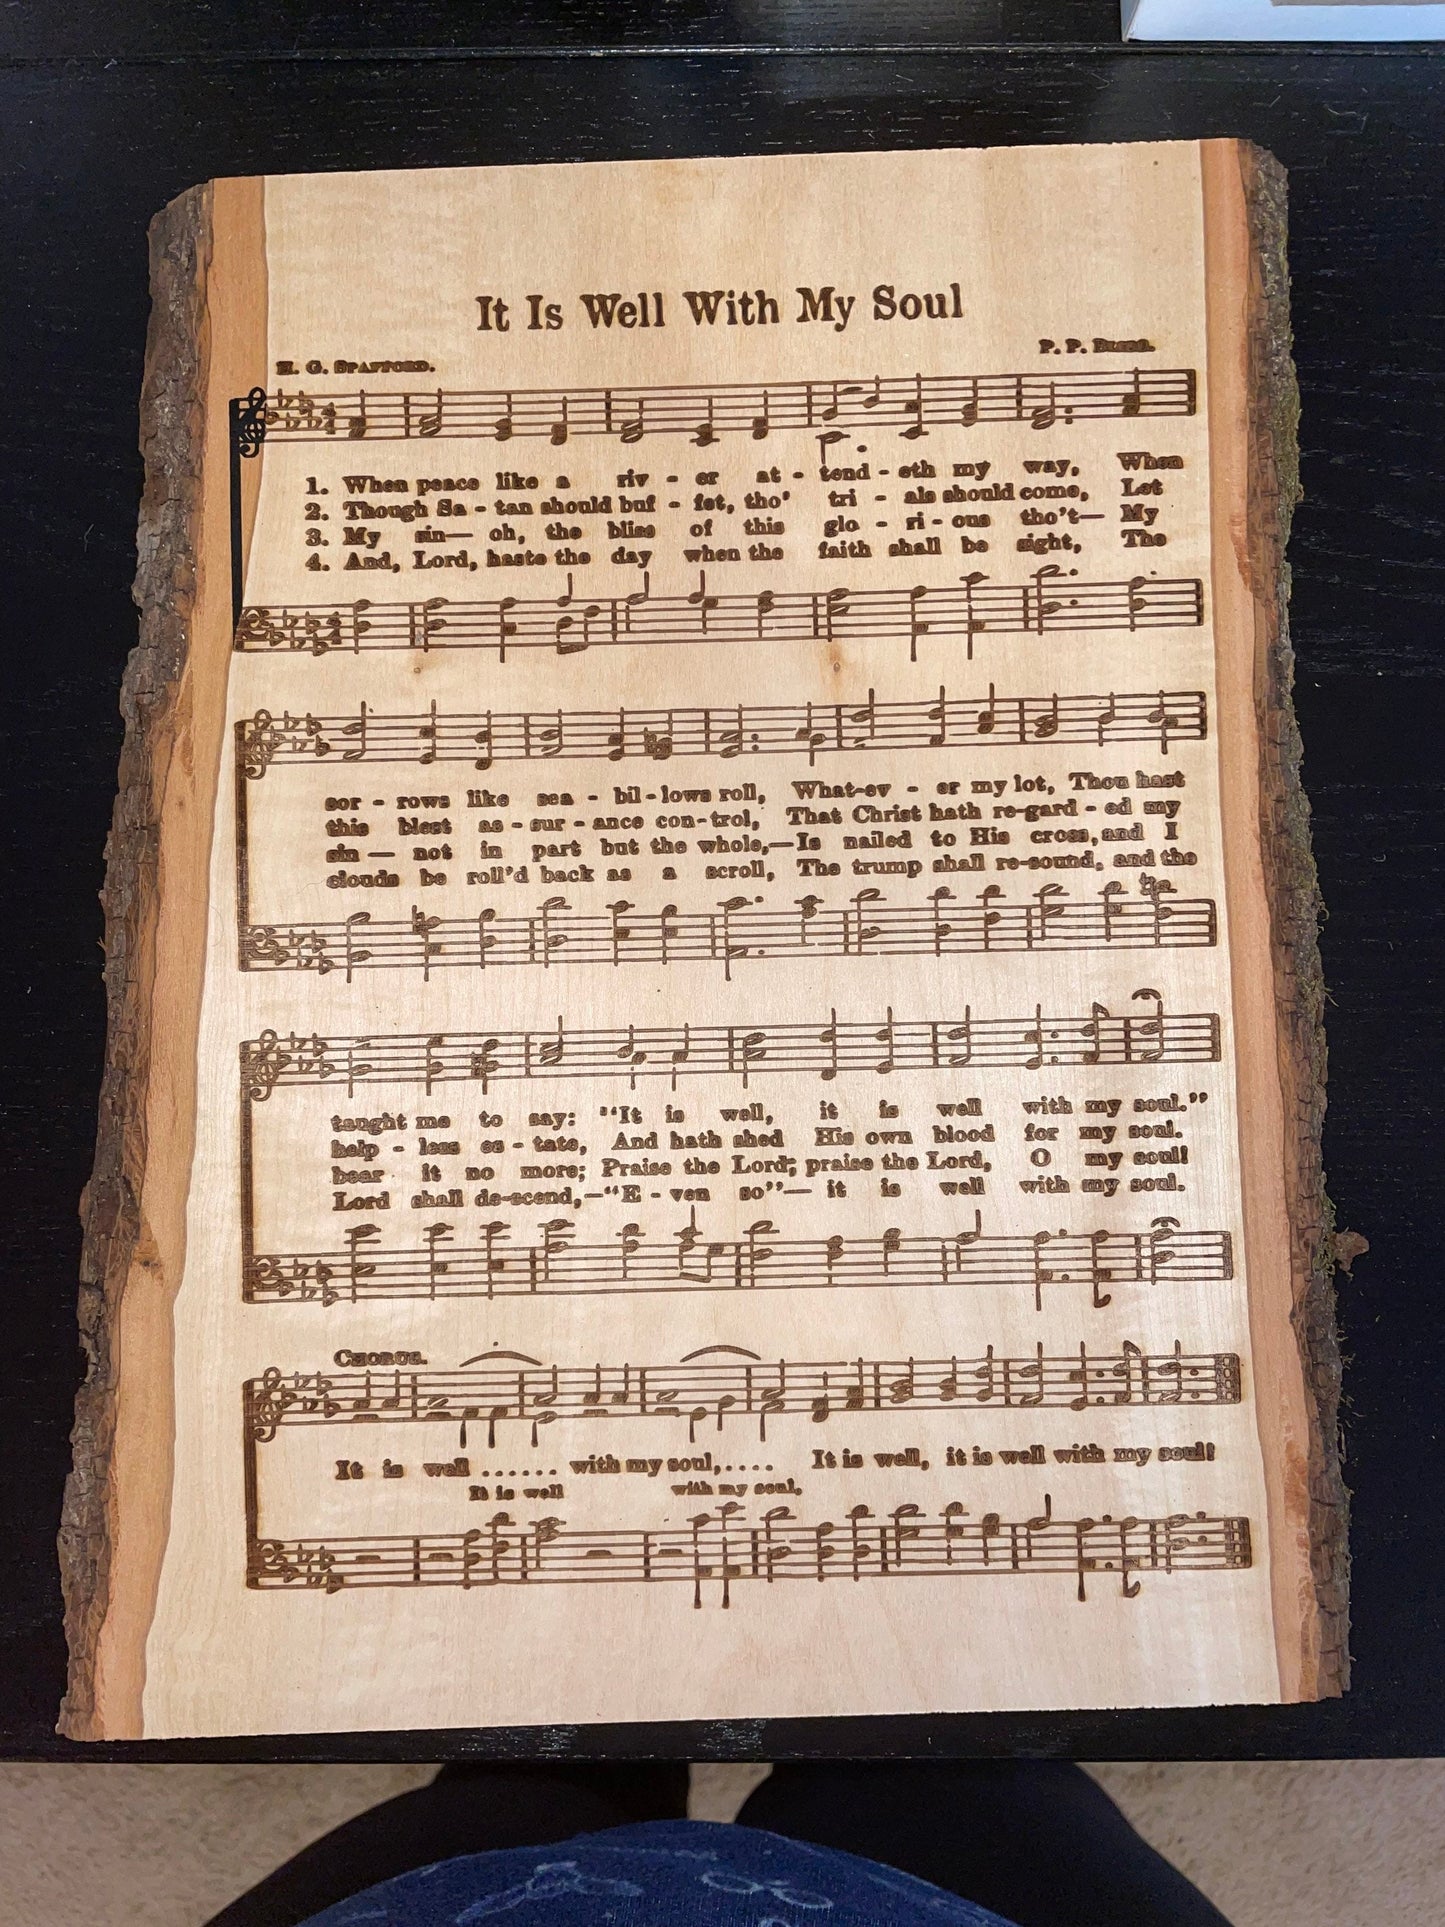 It Is Well With My Soul
H. G. SPAFFORD.
P. P. BLISS.
1. When peace like a riv - er at - tend - eth my way, When
2. Though Sa - tan should buf - fet, tho' tri - als should come, Let
3. My sin— oh, the bliss of this glo - ri - ous tho't— My
4. And, Lord, haste the day when the faith shall be sight, The
sor - rows like sea - bil - lows roll, What-ev - er my lot, Thou hast
this blest as - sur - ance con-trol, That Christ hath re-gard - ed my
sin — not in part but the whole,—Is nailed to His cross, and I
clouds be roll'd back as a scroll, The trump shall re-sound, and the
taught me to say: "It is well, it is well with my soul."
help - less es - tate, And hath shed His own blood for my soul.
bear it no more; Praise the Lord, praise the Lord, O my soul!
Lord shall de-scend,—"E - ven so"— it is well with my soul.
CHORUS.
It is well ...... with my soul,.... It is well, it is well with my soul!
It is well with my soul,